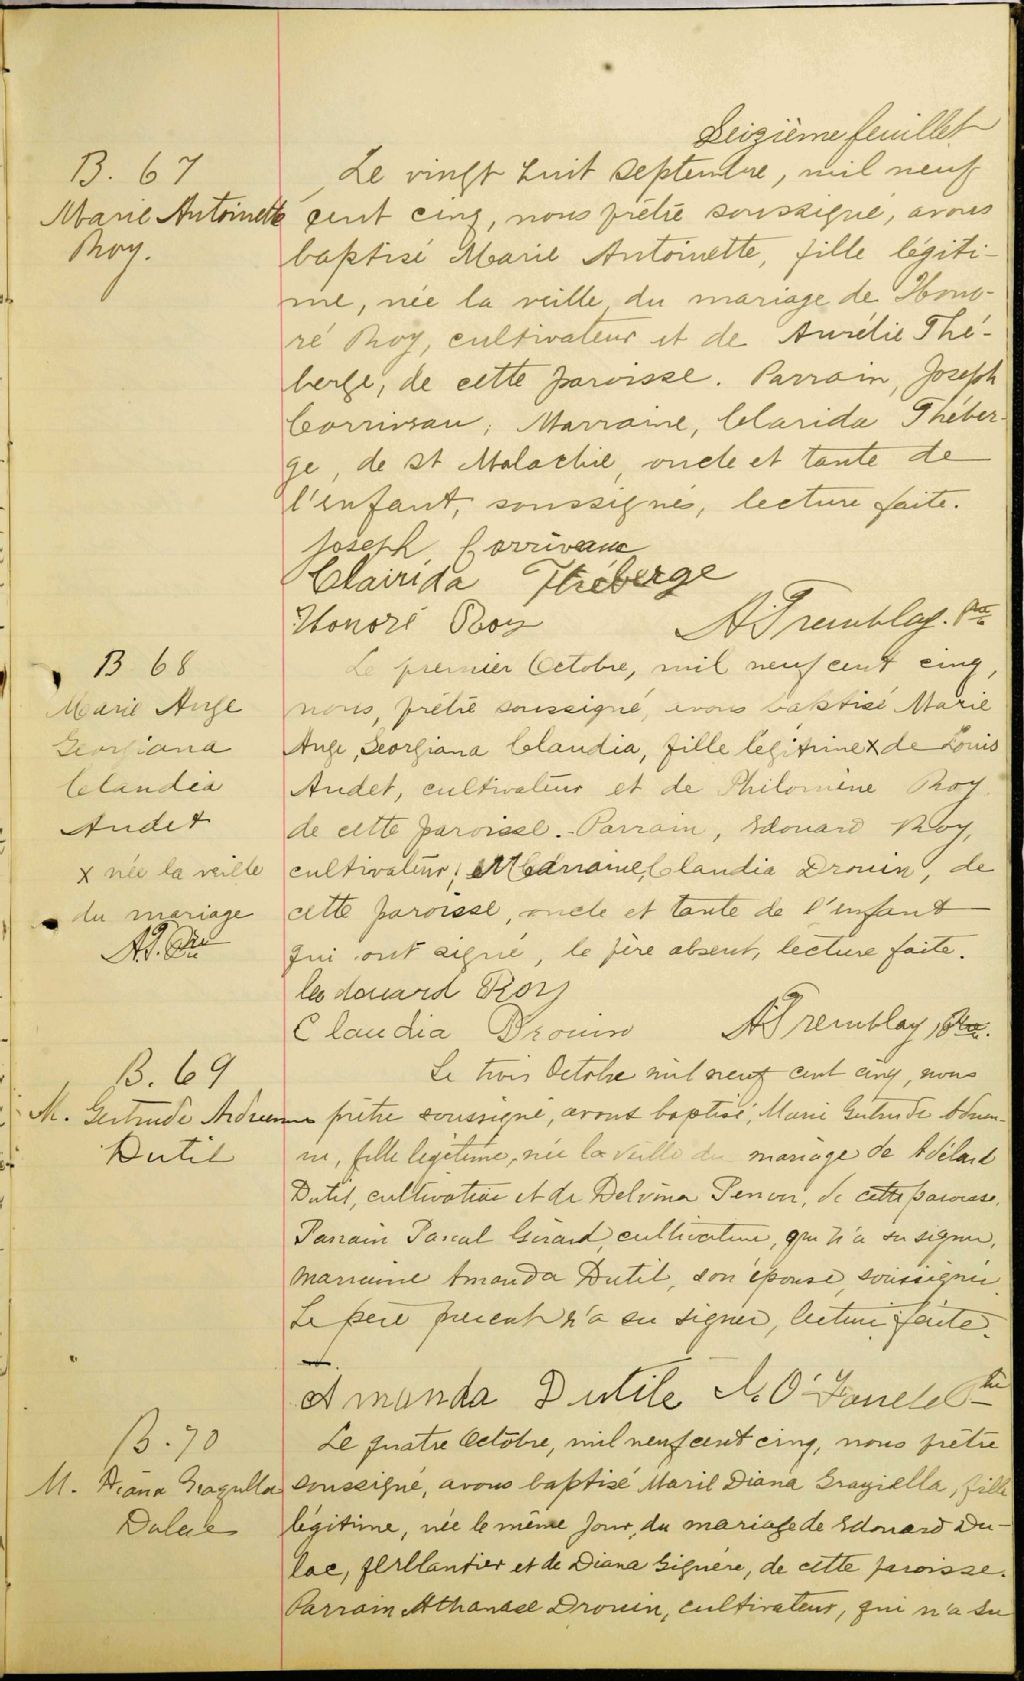 Seizième feuillet
B. 67
Marie Antoinette
Roy.
Le vingt huit septembre, mil neuf
cent cinq, nous prêtre soussigné, avons
baptisé Marie Antoinette, fille légiti-
me, née la veille du mariage de Hono-
ré Roy, cultivateur et de Aurélie Thé-
berge, de cette paroisse. Parrain, Joseph
Corriveau, Marraine, Clarida Théber-
ge, de St Malachie, oncle et tante de
l'enfant, soussignés, lecture faite.
Joseph Corriveau
Clairida Théberge
Honoré Roy
A. Tremblay. Ptre
B 68
Marie Ange
Georgiana
Claudia
Audet
x née la veille
du mariage
A.T. Ptre
Le premier Octobre, mil neuf cent cinq,
nous, prêtre soussigné, avons baptisé Marie
Ange, Georgiana Claudia, fille légitime x de Louis
Audet, cultivateur et de Philomène Roy
de cette paroisse. Parrain, Edouard Roy,
cultivateur, Marraine, Claudia Drouin, de
cette paroisse, oncle et tante de l'enfant
qui ont signé, le père absent, lecture faite.
Edouard Roy
Claudia Drouin
A Tremblay, Ptre.
B. 69
M. Gertrude Adrienne
Dutil
Le trois Octobre mil neuf cent cinq, nous
prêtre soussigné, avons baptisé, Marie Gertrude Adrien-
ne, fille légitime, née la veille du mariage de Adélard
Dutil, cultivateur et de Delvina de cette paroisse.
Parrain Pascal Girard, cultivateur, qui n'a su signer,
marraine Amanda Dutil, son épouse, soussignée.
Le père présent n'a su signer, lecture faite.
Amanda Dutile
B. 70
M. Diana Graziella
Dulac
Le quatre Octobre, mil neuf cent cinq, nous prêtre
soussigné, avons baptisé Marie Diana Graziella, fille
légitime, née le même jour, du mariage de Edouard Du-
lac, ferblantier et de Diana Giguère, de cette paroisse.
Parrain Athanase Drouin, cultivateur, qui n'a su